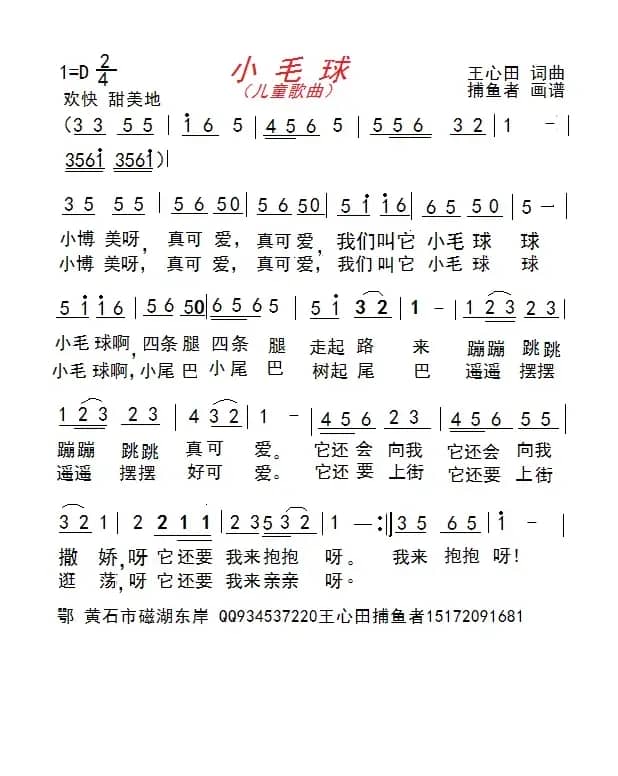 1=D 2/4 小毛球 王心田 词曲
欢快 甜美地 （儿童歌曲） 捕鱼者 画谱
(3 3 5 5 | i 6 5 | 4 5 6 5 | 5 5 6 3 2 | 1 - |
3561 3561)|
3 5 5 5 | 5 6 50 | 5 6 50 | 5 i i 6 | 6 5 5 0 | 5 — |
小博 美呀，真可 爱，真可爱，我们叫它 小毛 球 球
小博 美呀，真可 爱，真可爱，我们叫它 小毛 球 球
5 i i 6 | 5 6 50 | 6 5 6 5 | 5 i 3 2 | 1 - | 1 2 3 2 3 |
小毛 球啊，四条 腿 四条 腿 走起 路 来 蹦蹦 跳跳
小毛 球啊，小尾 巴 小尾 巴 树起 尾 巴 遥遥 摆摆
1 2 3 2 3 | 4 3 2 | 1 - | 4 5 6 2 3 | 4 5 6 5 5 |
蹦蹦 跳跳 真可 爱。 它还会 向我 它还会 向我
遥遥 摆摆 好可 爱。 它还要 上街 它还要 上街
3 2 1 | 2 2 1 1 | 2 3 5 3 2 | 1 — :| 3 5 6 5 | i - |
撒 娇，呀 它还要 我来抱抱 呀。 我来 抱抱 呀！
逛 荡，呀 它还要 我来亲亲 呀。
鄂 黄石市磁湖东岸 QQ934537220王心田捕鱼者15172091681